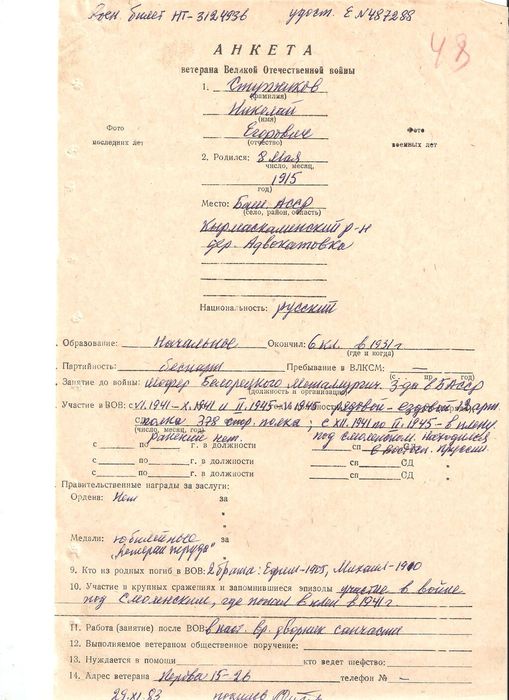 Воен. билет НТ-3124936 удост. Е N487288
43
АНКЕТА
ветерана Великой Отечественной войны
1. Ступников
(фамилия)
Николай
(имя)
Фото последних лет
Егорович
Фото военных лет
(отчество)
2. Родился: 8 мая
число, месяц,
1915
год)
Место: Баш. АССР
(село, район, область)
Кырмаскалинский р-н
дер. Адвокатовка
Национальность: русский
Образование: начальное Окончил: 6 кл. в 1931 г
(где и когда)
Партийность: беспарт Пребывание в ВЛКСМ:
(с пр год)
4. Занятие до войны: шофер Белорецкого Металургич. З-да в БАССР
(должность и организация)
Участие в ВОВ: с VI.1941-X.1941 и II.1945 рядовой-ездовой арт.
полка 378 стр. полка; с XII.1941 по II.1945-в плену
(число, месяц, год)
ранений нет. под Смоленском. Находился
с по г. в должности в восточ. Пруссии.
с по г. в должности сп СД
с по г. в должности сп СД
Правительственные награды за заслуги:
Ордена: Нет за
Медали: юбилейные за
„Ветеран труда"
9. Кто из родных погиб в ВОВ: 2 брата: Ефим-1905, Михаил-1910
10. Участие в крупных сражениях и запомнившиеся эпизоды участие в войне
под Смоленским, где попал в плен в 1941 г
11. Работа (занятие) после ВОВ: в наст. вр. дворник санчасти
12. Выполняемое ветераном общественное поручение:
13. Нуждается в помощи кто ведет шефство:
14. Адрес ветерана Кирова 15-26 телефон № -
29.XI.83